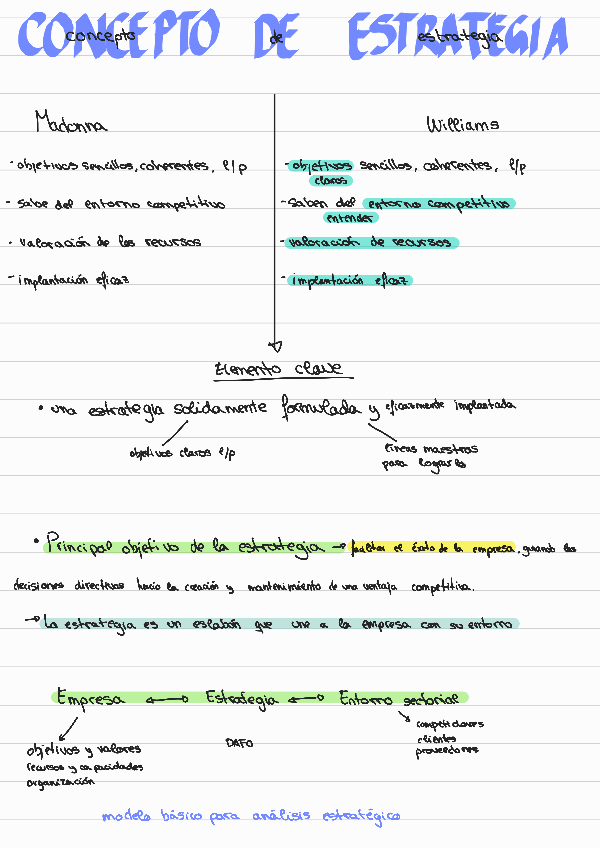 CONCEPTO DE ESTRATEGIA
concepto de estrategia
Madonna
- objetivos sencillos, coherentes, l/p
- sabe del entorno competitivo
- valoración de los recursos
- implantación eficaz
Williams
- objetivos sencillos, coherentes, l/p
claros
- Saben del entorno competitivo
entender
- valoración de recursos
- implantación eficaz
Elemento clave
• una estrategia solidamente formulada y eficazmente implantada
objetivos claros l/p
líneas maestras
para lograrlo
• Principal objetivo de la estrategia → facilitar el éxito de la empresa, guiando las
decisiones directivas hacia la creación y mantenimiento de una ventaja competitiva.
→ La estrategia es un eslabón que une a la empresa con su entorno
Empresa ↔ Estrategia ↔ Entorno sectorial
objetivos y valores
recursos y capacidades
organización
DAFO
competidores
clientes
proveedores
modelo básico para análisis estratégico